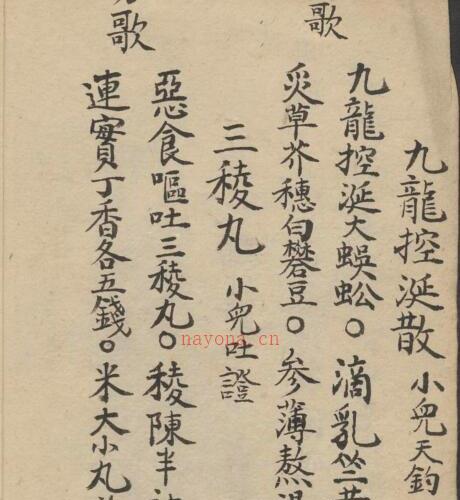 九龍控涎散 小兒天釣
九龍控涎大蜈蚣。滴乳竺黃
歌
炙草芥穗白礬豆。參薄熬湯
三稜丸 小兒吐證
惡食嘔吐三稜丸。稜陳半
歌
連實丁香各五錢。米大小丸
nayona.cn